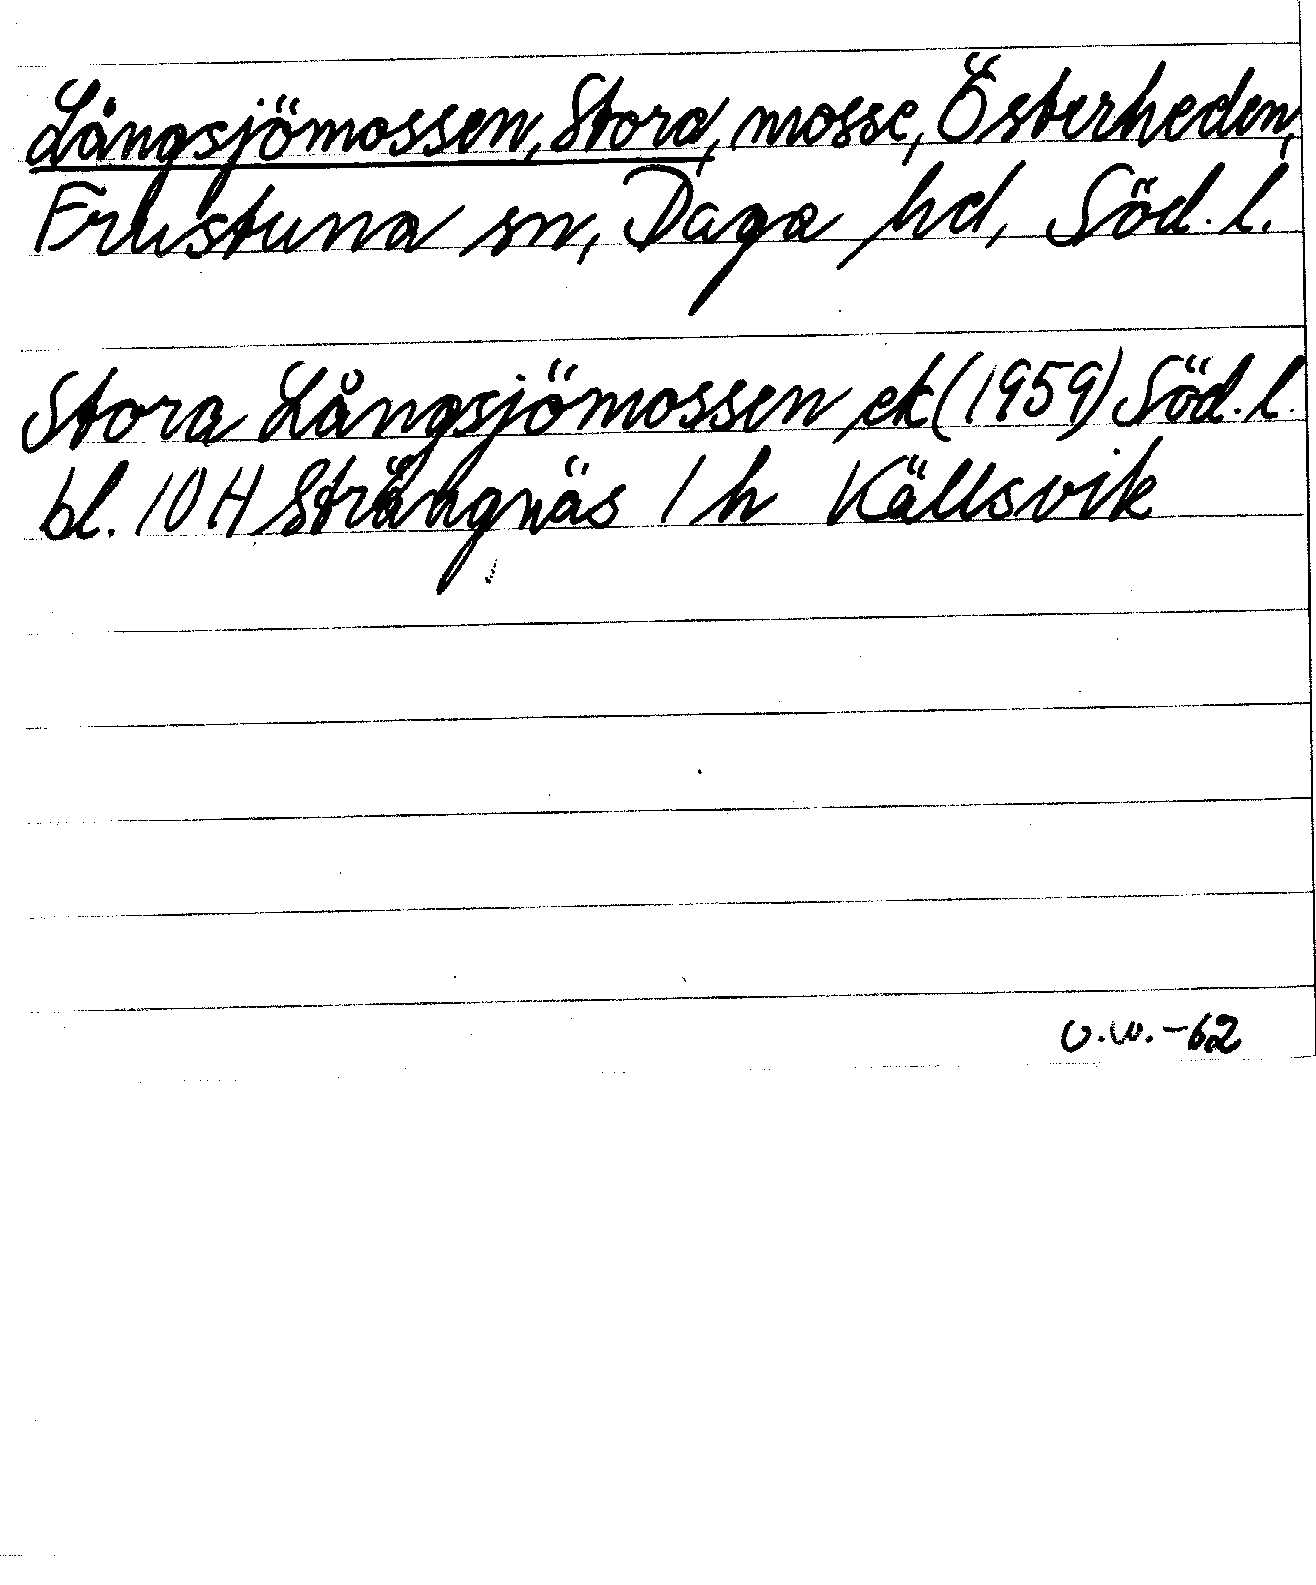 Långsjömossen, Stora, mosse, Österheden,
Frustuna sn, Daga hd, Söd. l.
Stora Långsjömossen ek (1959) Söd. l.
bl. 10 H Strängnäs 1 h Källsvik
v.w. -62